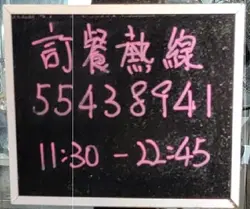 訂餐熱線
55438941
11:30 - 22:45